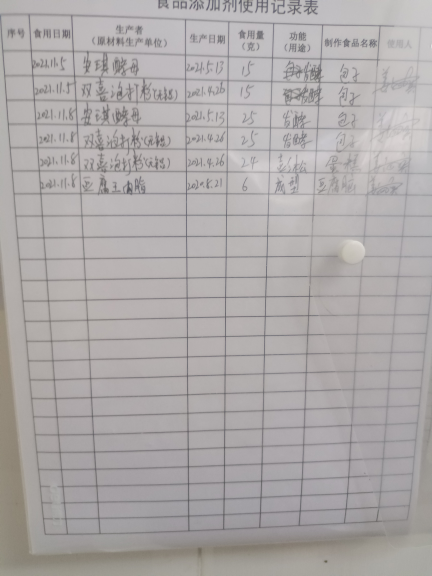 食品添加剂使用记录表
序号 食用日期 生产者（原材料生产单位） 生产日期 食用量（克） 功能（用途） 制作食品名称 使用人
2021.11.5 安琪酵母 2021.5.13 15 发酵 包子
2021.11.5 双喜泡打粉(无铝) 2021.4.26 15 发酵 包子
2021.11.8 安琪酵母 2021.5.13 25 发酵 包子
2021.11.8 双喜泡打粉(无铝) 2021.4.26 25 发酵 包子
2021.11.8 双喜泡打粉(无铝) 2021.4.26 24 蓬松 蛋糕
2021.11.8 豆腐王内脂 2020.8.21 6 成型 豆腐脑